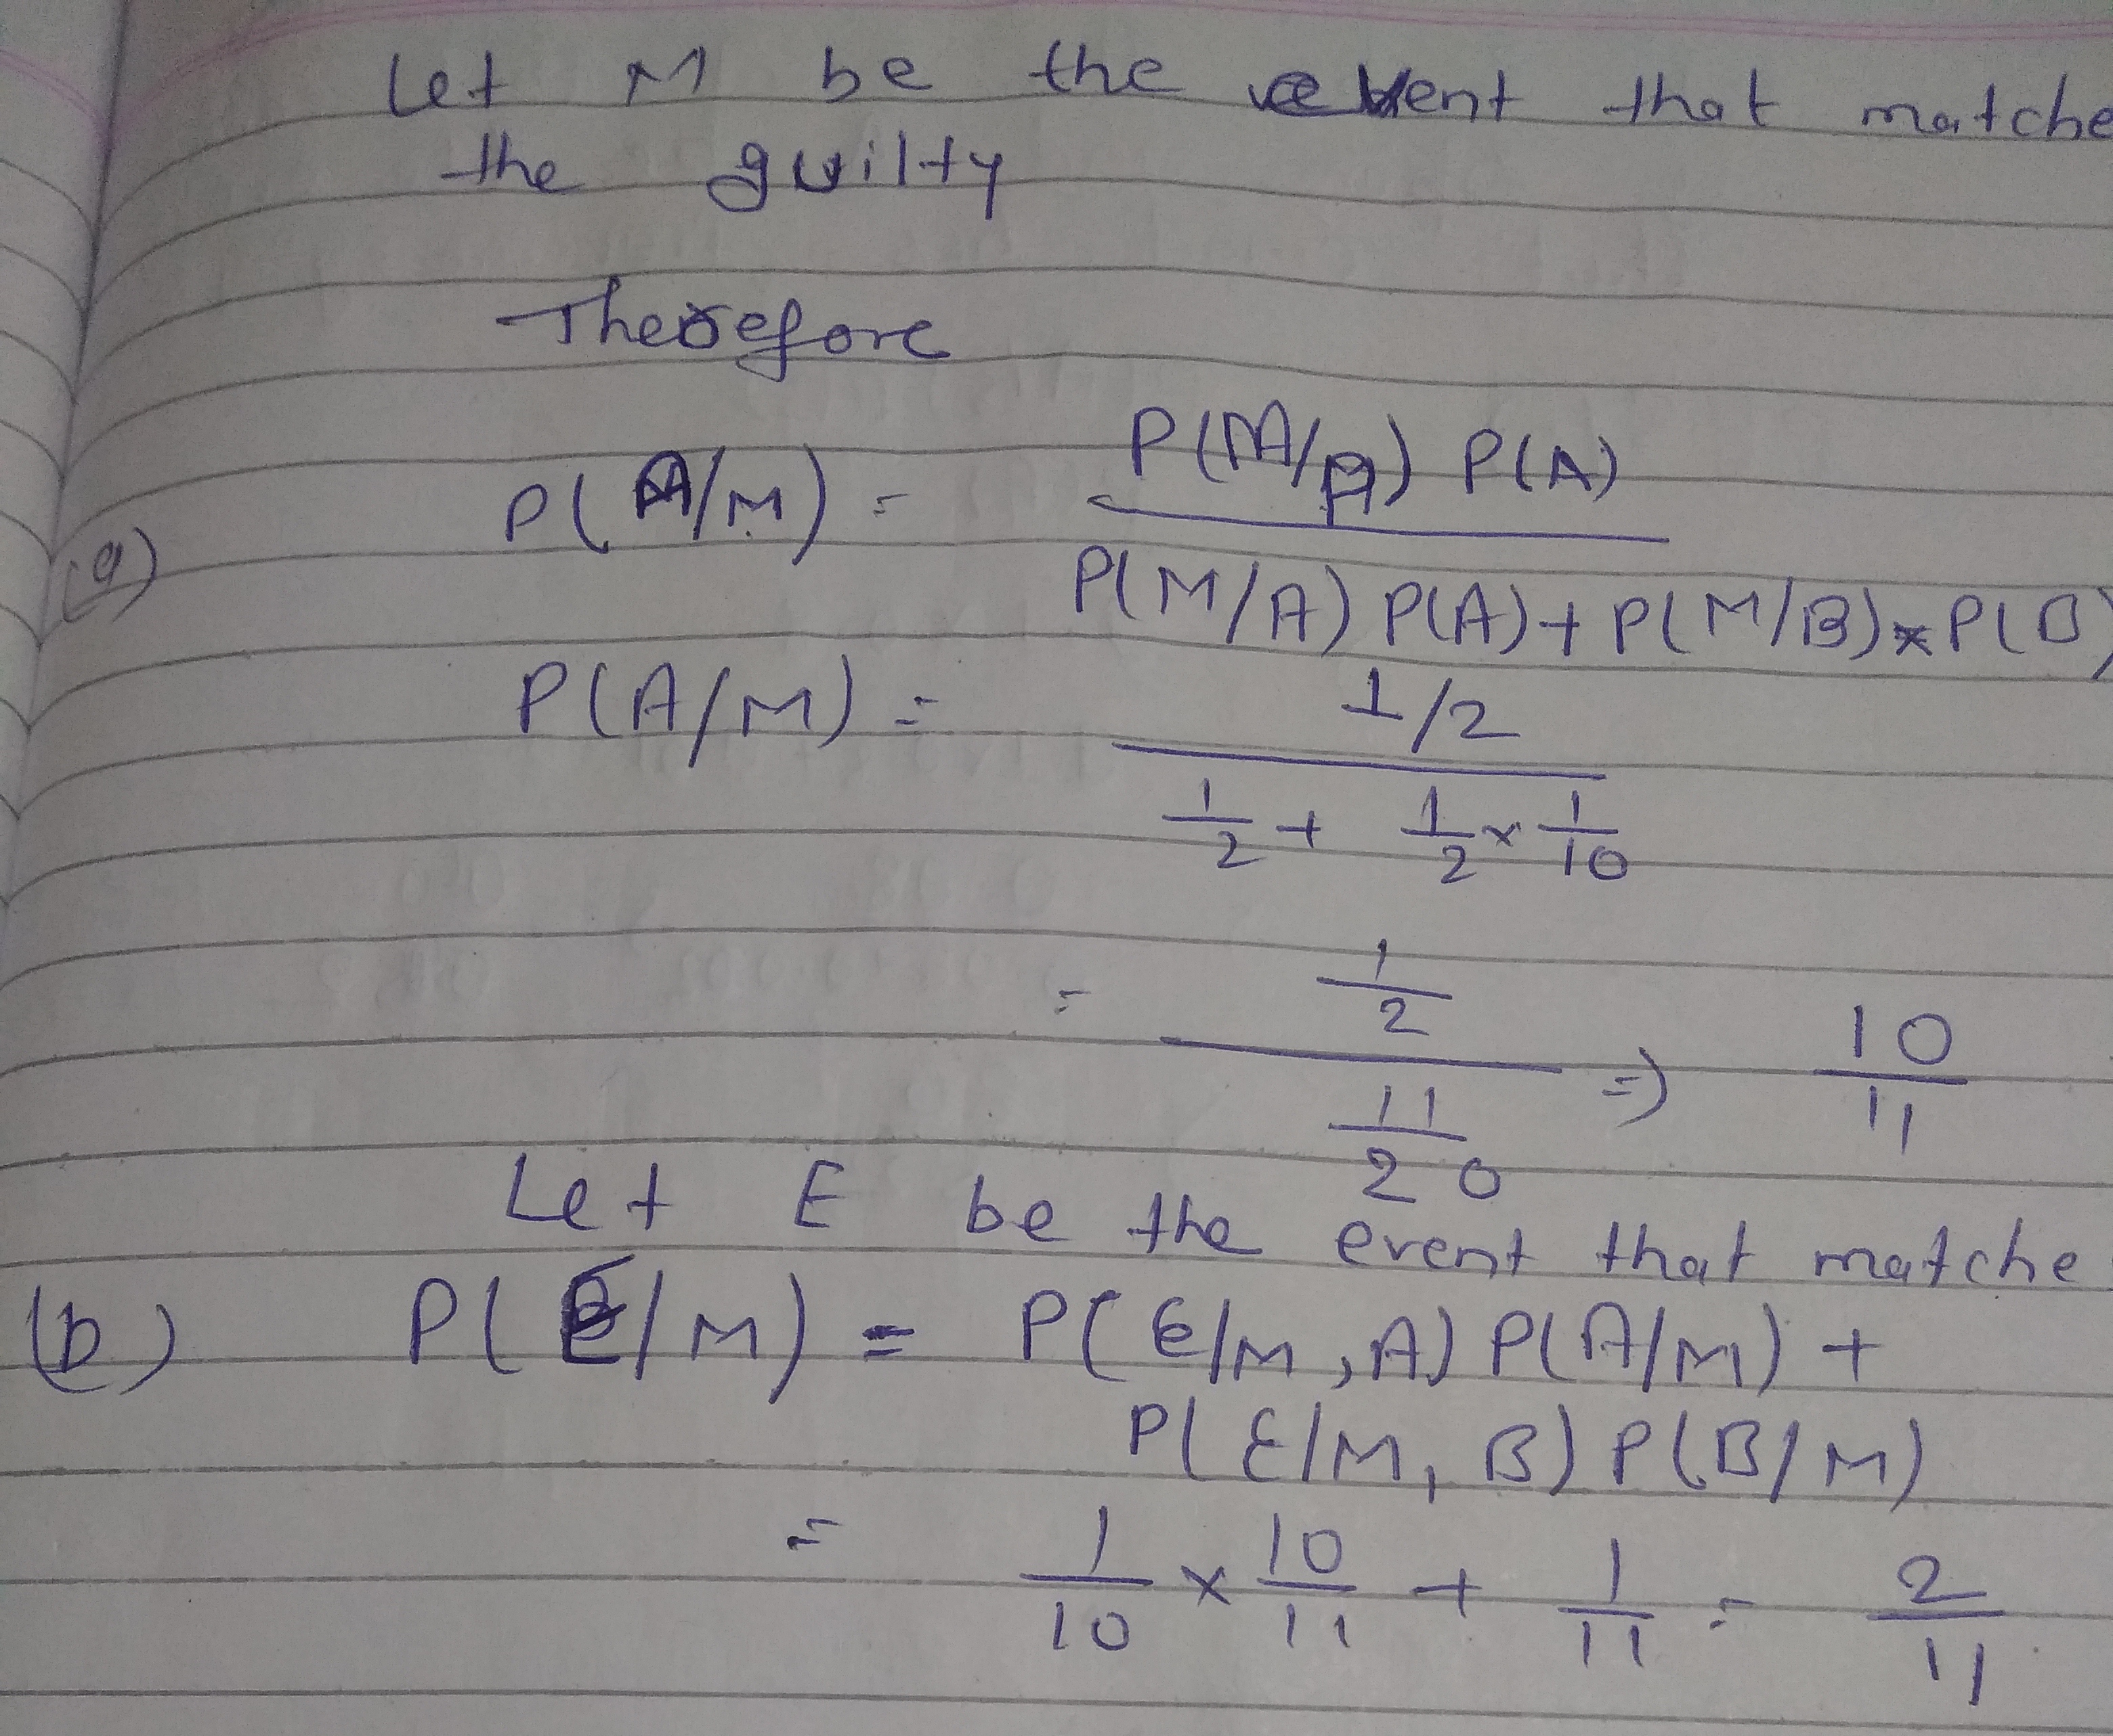 Let M be the event that matche
the guilty
Therefore
(a) P(A/M) = P(M/A) P(A)
P(M/A) P(A) + P(M/B) × P(B)
P(A/M) = 1/2
1/2 + 1/2 × 1/10
= 1/2 / 11/20 => 10/11
Let E be the event that matche
(b) P(E/M) = P(E/M, A) P(A/M) +
P(E/M, B) P(B/M)
= 1/10 × 10/11 + 1/11 = 2/11